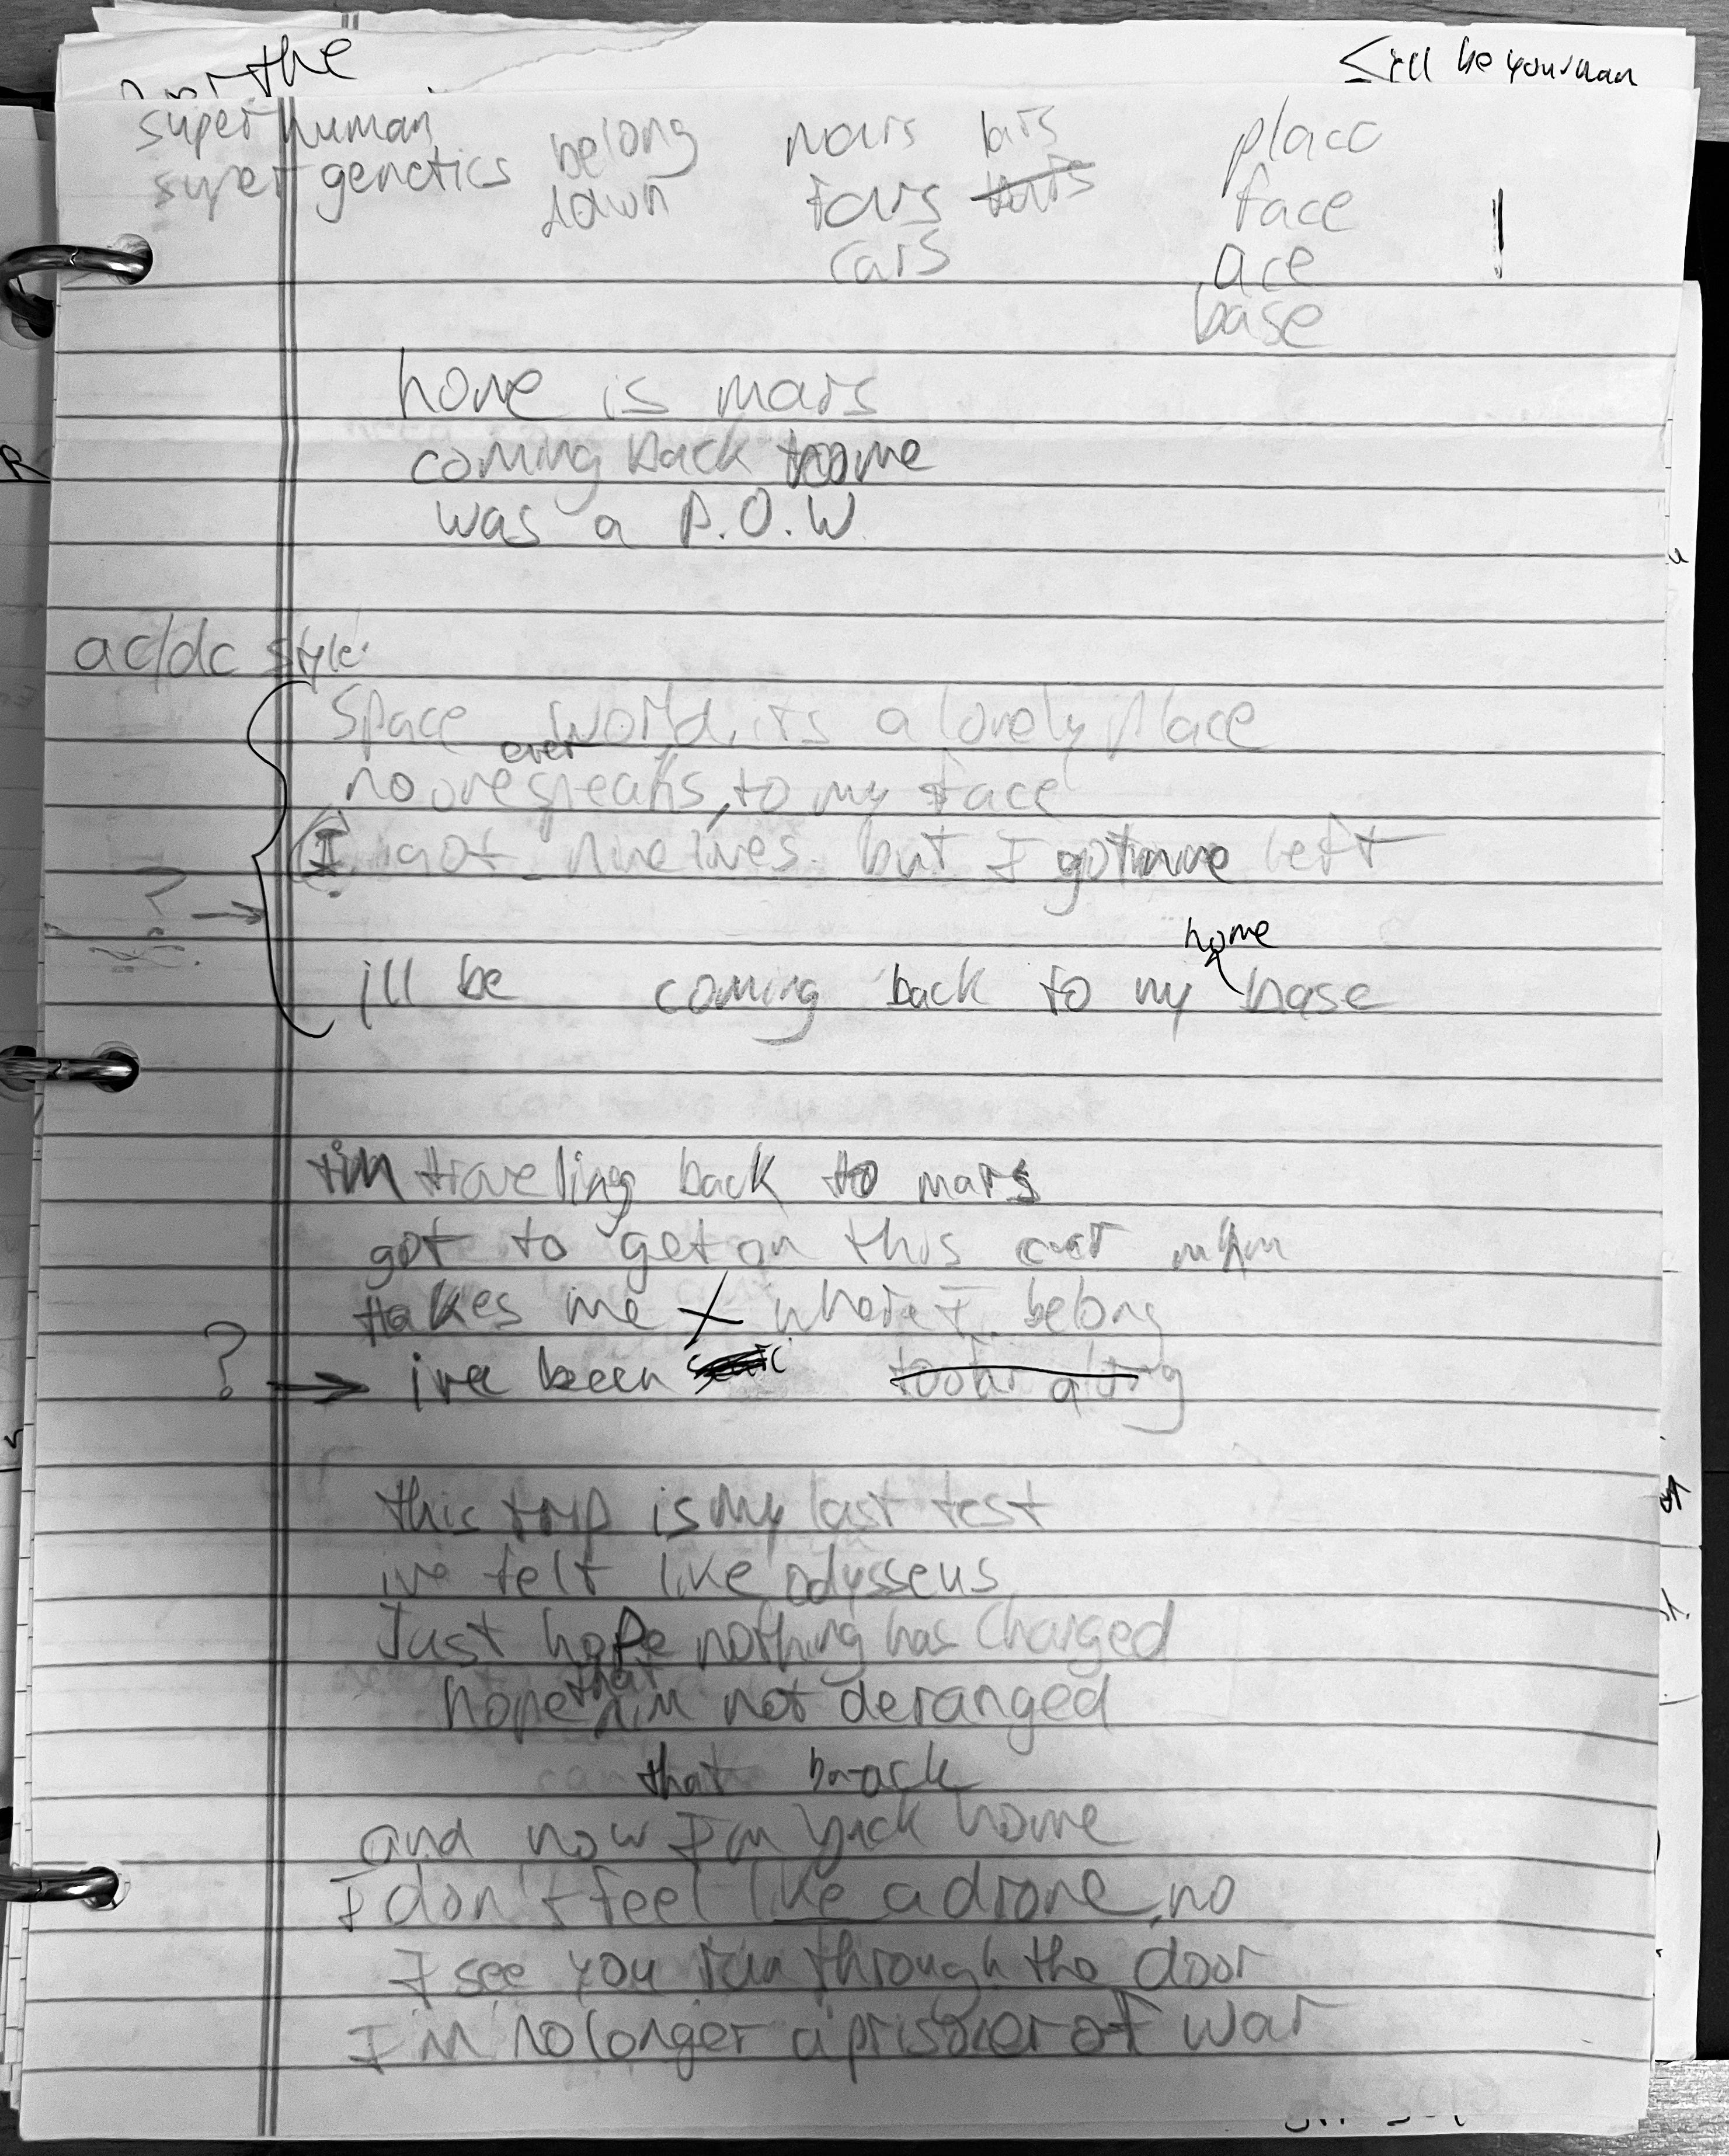 the
ill be your man
super human
super genetics
belong
dawn
mars bars
tars
cars
place
face
ace
base
home is mars
coming back home
was a P.O.W.
ac/dc style:
Space world, its a lonely place
no one ever speaks, to my face
I got nine lives but I got none left
?
ill be coming back to my home base
im traveling back to mars
got to get on this
takes me where I belong
? → ive been took along
this trip is my last test
ive felt like odysseus
Just hope nothing has changed
hope that im not deranged
that back
and now I'm back home
I don't feel like a drone, no
I see you run through the door
I'm no longer a prisoner of war